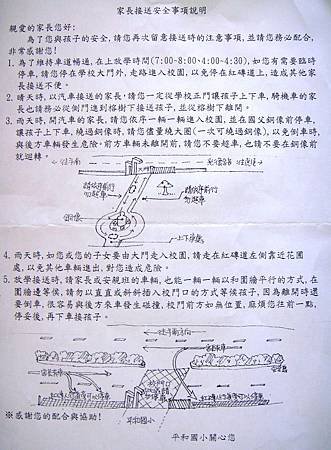 家長接送安全事項說明
親愛的家長您好:
為了您與孩子的安全,請您再次留意接送時的注意事項,並請您務必配合,
非常感謝您!
1. 為了維持車道暢通,在上放學時間(7:00-8:00、4:00-4:30),如您有需要臨時
停車,請您停在學校大門外,走路進入校園,以免停在紅磚道上,造成其他家
長接送不便。
2. 晴天時,以汽車接送者,請您一定從學校正門讓孩子上下車,騎機車的家
長也請務必從側門進到榕樹下接送孩子,並從榕樹下離開。
3. 雨天時,開汽車的家長,請您依序一輛一輛進入校園,並在國父銅像前停車,
讓孩子上下車,繞過銅像時,請您儘量繞大圈(一次可繞過銅像),以免倒車時,
與後方車輛發生危險,前方車輛未離開前,請您不要超車,也請不要在銅像前
就迴轉。
請依序前行
勿超車
請依序前行
勿超車
上下車處
4. 雨天時,如您或您的子女要由大門走入校園,請走在紅磚道左側靠近花圃
處,以免其他車輛進出,對您造成危險。
5. 放學接送時,請家長或安親班的車輛,也能一輛一輛以和圍牆平行的方式,在
圍牆邊等候,請勿以直直或斜斜插入校門口的方式等候孩子,因為離開時還
要倒車,很容易與後方來車發生碰撞,校門前方如無位置,麻煩您往前一點,
停妥後,再下車接孩子。
平和國小
※感謝您的配合與協助!
平和國小關心您